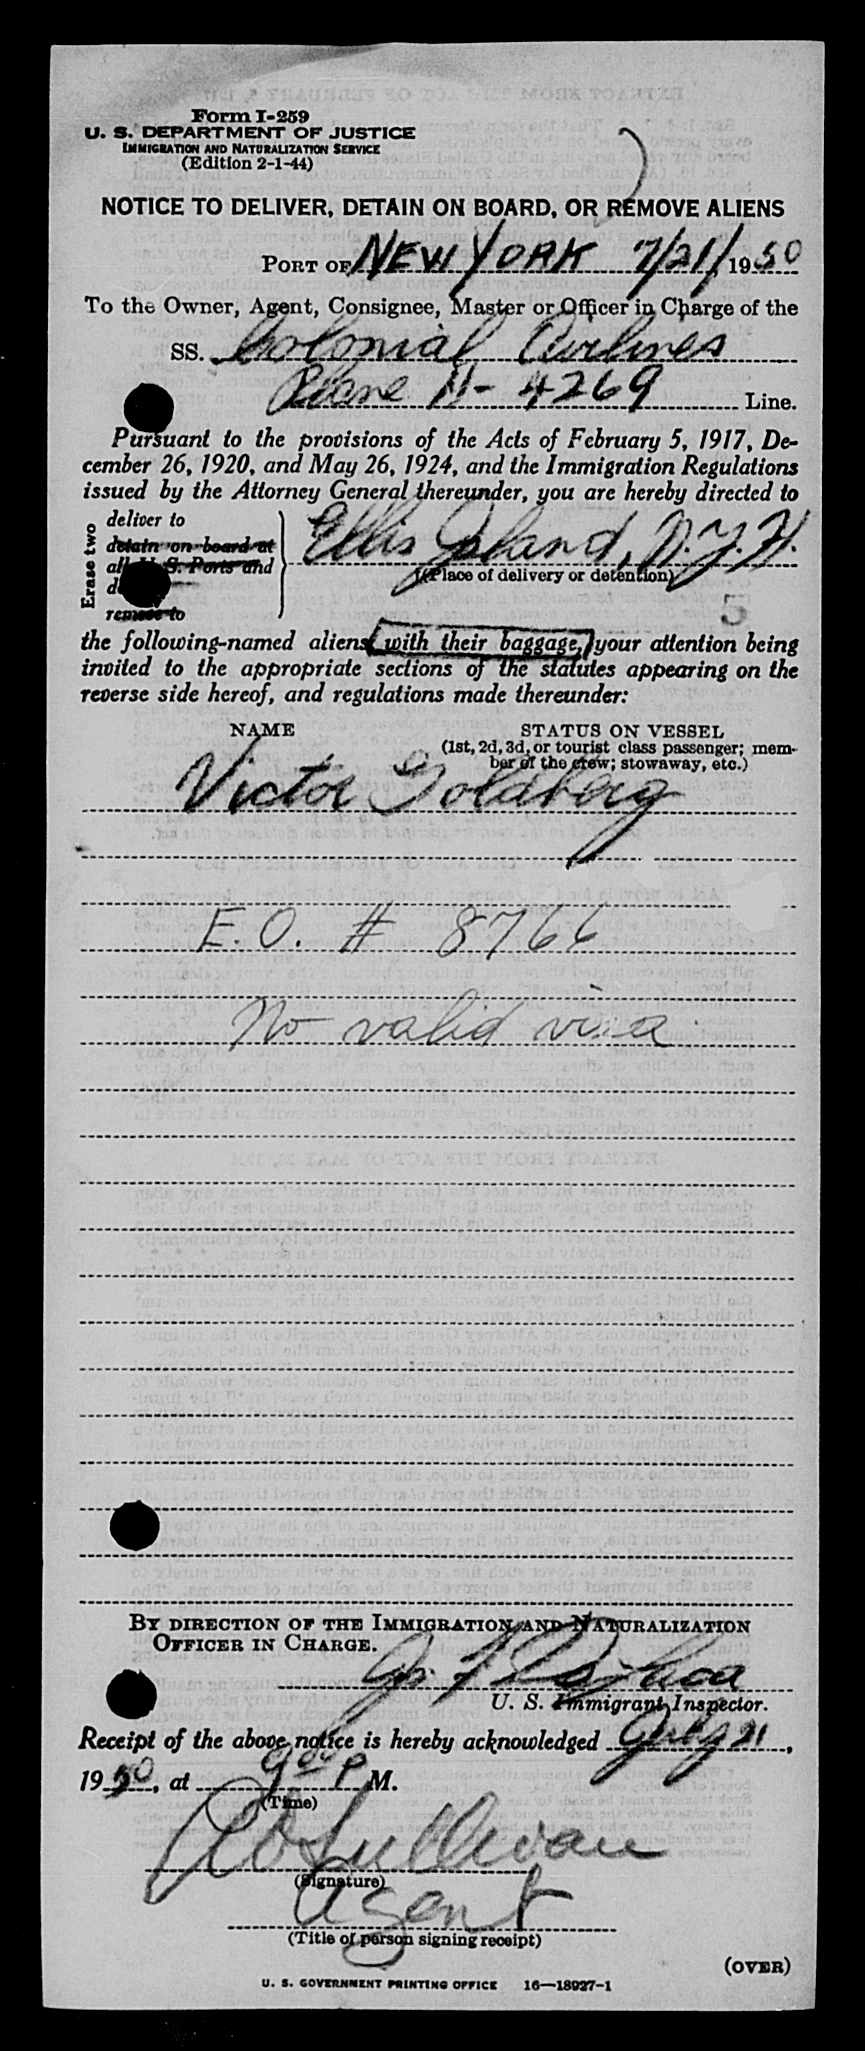 Form I-259
U. S. DEPARTMENT OF JUSTICE
IMMIGRATION AND NATURALIZATION SERVICE
(Edition 2-1-44)
NOTICE TO DELIVER, DETAIN ON BOARD, OR REMOVE ALIENS
PORT OF NEW YORK 7/21/1950
To the Owner, Agent, Consignee, Master or Officer in Charge of the
SS. Colonial Airlines
Plane N- 4269 Line.
Pursuant to the provisions of the Acts of February 5, 1917, De-
cember 26, 1920, and May 26, 1924, and the Immigration Regulations
issued by the Attorney General thereunder, you are hereby directed to
Erase two
deliver to
detain on board at
all U. S. Ports and
remove to
Ellis Island, N.Y.H.
(Place of delivery or detention)
5
the following-named aliens with their baggage, your attention being
invited to the appropriate sections of the statutes appearing on the
reverse side hereof, and regulations made thereunder:
NAME STATUS ON VESSEL
(1st, 2d, 3d, or tourist class passenger; mem-
ber of the crew; stowaway, etc.)
Victor Goldberg
E.O. # 8766
No valid visa
BY DIRECTION OF THE IMMIGRATION AND NATURALIZATION
OFFICER IN CHARGE.
U. S. Immigrant Inspector.
Receipt of the above notice is hereby acknowledged July 21,
1950, at 9 00 P M.
(Time)
Sullivan
(Signature)
Agent
(Title of person signing receipt)
(OVER)
U. S. GOVERNMENT PRINTING OFFICE 16—18927-1